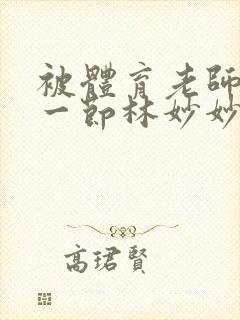 被體育老師
一節林妙妙
高珺賢